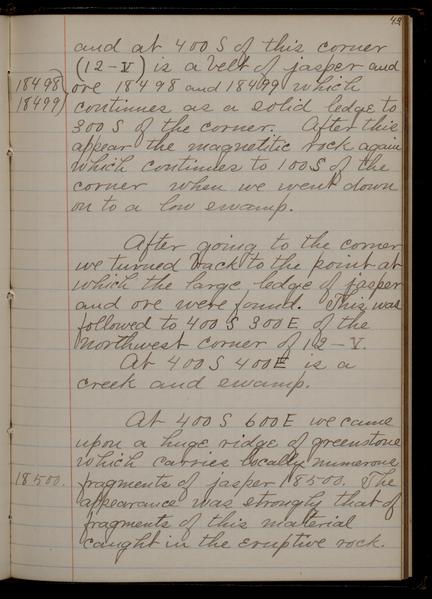 49
and at 400 S of this corner
(12-V) is a belt of jasper and
18498 ore 18498 and 18499 which
18499 continues as a solid ledge to
300 S of the corner. After this
appear the magnetitic rock again
which continues to 100 S of the
corner when we went down
on to a low swamp.
After going to the corner
we turned back to the point at
which the large ledge of jasper
and ore were found. This was
followed to 400 S 300 E of the
Northwest corner of 12-V.
At 400 S 400 E is a
creek and swamp.
At 400 S 600 E we came
upon a huge ridge of greenstone
which carries locally numerous
18500. fragments of jasper 18500. The
appearance was strongly that of
fragments of this material
caught in the eruptive rock.